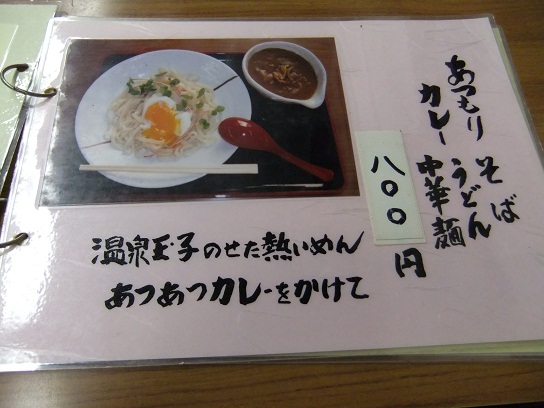 あつもり そば
カレー うどん
中華麺
八〇〇円
温泉玉子のせた熱いめん
あつあつカレーをかけて